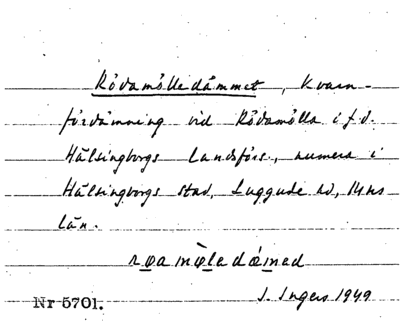 Rödamölledämmet, Kvarn-
fördämning vid Rödamölla i f.d.
Hälsingborgs landsförs., numera i
Hälsingborgs stad, Luggude hd, Mlhs
län.
røa mø̀ledámed
I. Ingers 1949
Nr 5701.